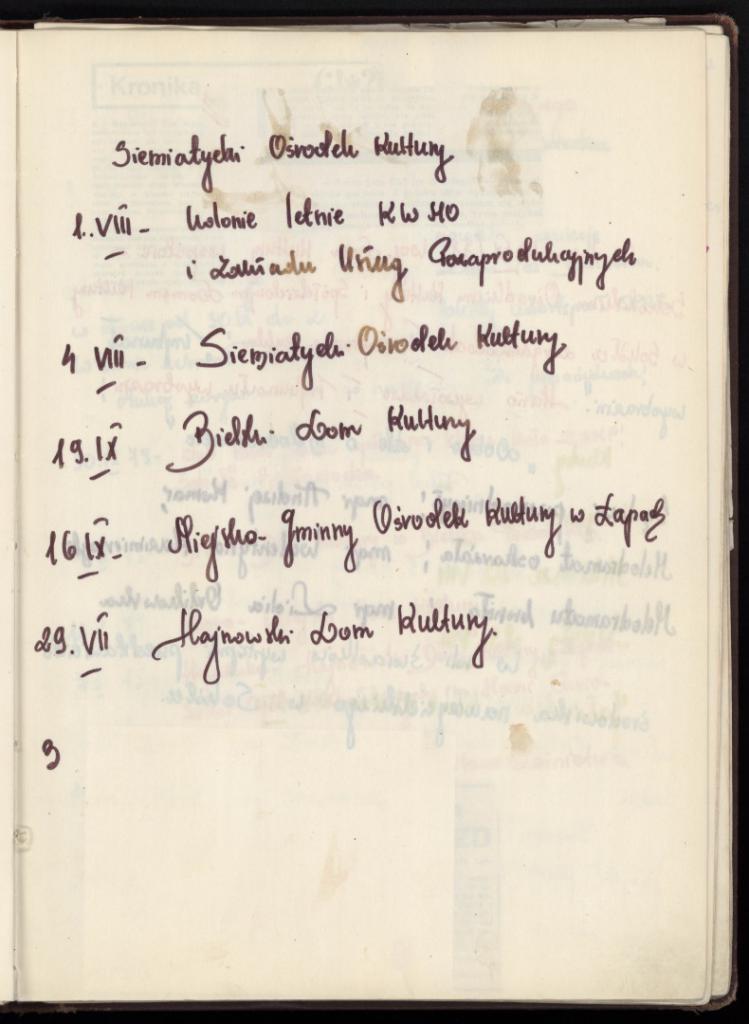 Siemiatycki Ośrodek Kultury
1. VIII - Kolonie letnie KWMO
i Zakładu Usług Pozaprodukcyjnych
4 VIII - Siemiatycki Ośrodek Kultury
19. IX Bielski Dom Kultury
16 IX - Miejsko-Gminny Ośrodek Kultury w Łapach
29. VII Hajnowski Dom Kultury.